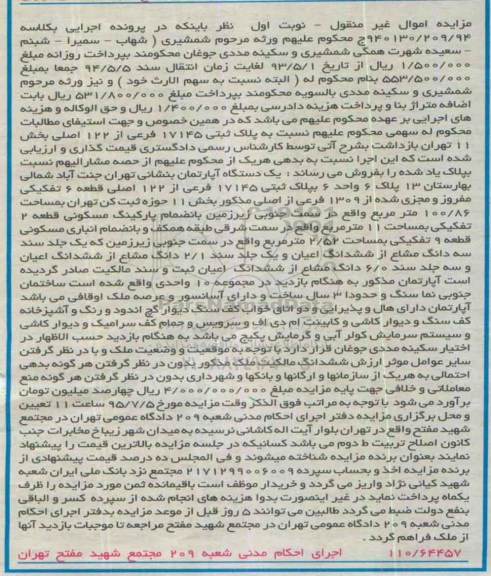 مزایده اموال غیر منقول - نوبت اول نظر باینکه در پرونده اجرایی بکلاسه
۹۴/۲۰۹/۹۴۰۱۳۰ج محکوم علیهم ورثه مرحوم شمشیری ( شهاب - سمیرا - شبنم
- سعیده شهرت همگی شمشیری و سکینه مددی جوغان محکومند بپرداخت روزانه مبلغ
۱/۵۰۰/۰۰۰ ریال از تاریخ ۹۳/۵/۱ لغایت زمان انتقال سند ۹۴/۵/۵ جمعا بمبلغ
۵۵۳/۵۰۰/۰۰۰ بنام محکوم له ( البته نسبت به سهم الارث خود ) و نیز ورثه مرحوم
شمشیری و سکینه مددی بالسویه محکومند بپرداخت مبلغ ۵۳۱/۸۰۰/۰۰۰ ریال بابت
اضافه متراژ بنا و پرداخت هزینه دادرسی بمبلغ ۱/۲۰۰/۰۰۰ ریال و حق الوکاله و هزینه
های اجرایی بر عهده محکوم علیهم می باشد که در همین خصوص و جهت استیفای مطالبات
محکوم له سهمی محکوم علیهم نسبت به پلاک ثبتی ۱۷۱۴۵ فرعی از ۱۲۲ اصلی بخش
۱۱ تهران بازداشت بشرح آتی توسط کارشناس رسمی دادگستری قیمت گذاری و ارزیابی
شده است که این اجرا نسبت به بدهی هریک از محکوم علیهم از حصه مشارالیهم نسبت
بپلاک یاد شده را بفروش می رساند : یک دستگاه آپارتمان بنشانی تهران جنت آباد شمالی
بهارستان ۱۳ پلاک ۶ واحد ۶ بپلاک ثبتی ۱۷۱۴۵ فرعی از ۱۲۲ اصلی قطعه ۶ تفکیکی
مفروز و مجزی شده از ۱۳۰۹ فرعی از اصلی مذکور بخش ۱۱ حوزه ثبت کن تهران بمساحت
۱۰۰/۸۶ متر مربع واقع در سمت جنوبی زیرزمین بانضمام پارکینگ مسکونی قطعه ۲
تفکیکی بمساحت ۱۱ مترمربع واقع در سمت شرقی طبقه همکف و بانضمام انباری مسکونی
قطعه ۹ تفکیکی بمساحت ۲/۵۲ مترمربع واقع در سمت جنوبی زیرزمین که یک جلد سند
سه دانگ مشاع از ششدانگ اعیان و یک جلد سند ۲/۱ دانگ مشاع از ششدانگ اعیان
و سه جلد سند ۰/۶ دانگ مشاع از ششدانگ اعیان ثبت و سند مالکیت صادر گردیده
است آپارتمان مذکور به هنگام بازدید در مجموعه ۱۰ واحدی واقع شده است ساختمان
جنوبی نما سنگ و حدودا ۳ سال ساخت و دارای آسانسور و عرصه ملک اوقافی می باشد
آپارتمان دارای هال و پذیرایی و دو اتاق خواب کف سنگ دیوار گچ اندود و رنگ و آشپزخانه
کف سنگ و دیوار کاشی و کابینت ام دی اف و سرویس و حمام کف سرامیک و دیوار کاشی
و سیستم سرمایش کولر آبی و گرمایش پکیج می باشد به هنگام بازدید حسب الاظهار در
اختیار سکینه مددی جوغان قرار دارد با توجه به موقعیت و وضعیت ملک و با در نظر گرفتن
سایر عوامل موثر ارزش ششدانگ مالکیت ملک مذکور بدون در نظر گرفتن هر گونه بدهی
احتمالی به هریک از سازمانها و ارگانها و بانکها و شهرداری بدون در نظر گرفتن هر گونه منع
معاملاتی و خلافی جهت پایه مزایده مبلغ ۴/۰۰۰/۰۰۰/۰۰۰ ریال چهارصد میلیون تومان
برآورد می شود با توجه به مراتب فوق الذکر وقت مزایده مورخ ۹۵/۷/۵ ساعت ۱۱ تعیین
و محل برگزاری مزایده دفتر اجرای احکام مدنی شعبه ۲۰۹ دادگاه عمومی تهران در مجتمع
شهید مفتح واقع در تهران بلوار آیت اله کاشانی نرسیده به میدان شهر زیبا خ مخابرات جنب
کانون اصلاح تربیت ط دوم می باشد کسانیکه در جلسه مزایده بالاترین قیمت را پیشنهاد
نمایند بعنوان برنده مزایده شناخته میشوند و فی المجلس ده درصد قیمت پیشنهادی از
برنده مزایده اخذ و بحساب سپرده ۲۱۷۱۲۹۹۰۰۶۰۰۹ مجتمع نزد بانک ملی ایران شعبه
شهید کیانی نژاد واریز می گردد و خریدار موظف است باقیمانده ثمن مورد مزایده را ظرف
یکماه پرداخت نماید در غیر اینصورت بدوا هزینه های انجام شده از سپرده کسر و الباقی
بنفع دولت ضبط می گردد طالبین می توانند ۵ روز قبل از موعد مزایده بدفتر اجرای احکام
مدنی شعبه ۲۰۹ دادگاه عمومی تهران در مجتمع شهید مفتح مراجعه تا موجبات بازدید آنها
از ملک فراهم گردد .
۱۱۰/۶۴۴۵۷ اجرای احکام مدنی شعبه ۲۰۹ مجتمع شهید مفتح تهران